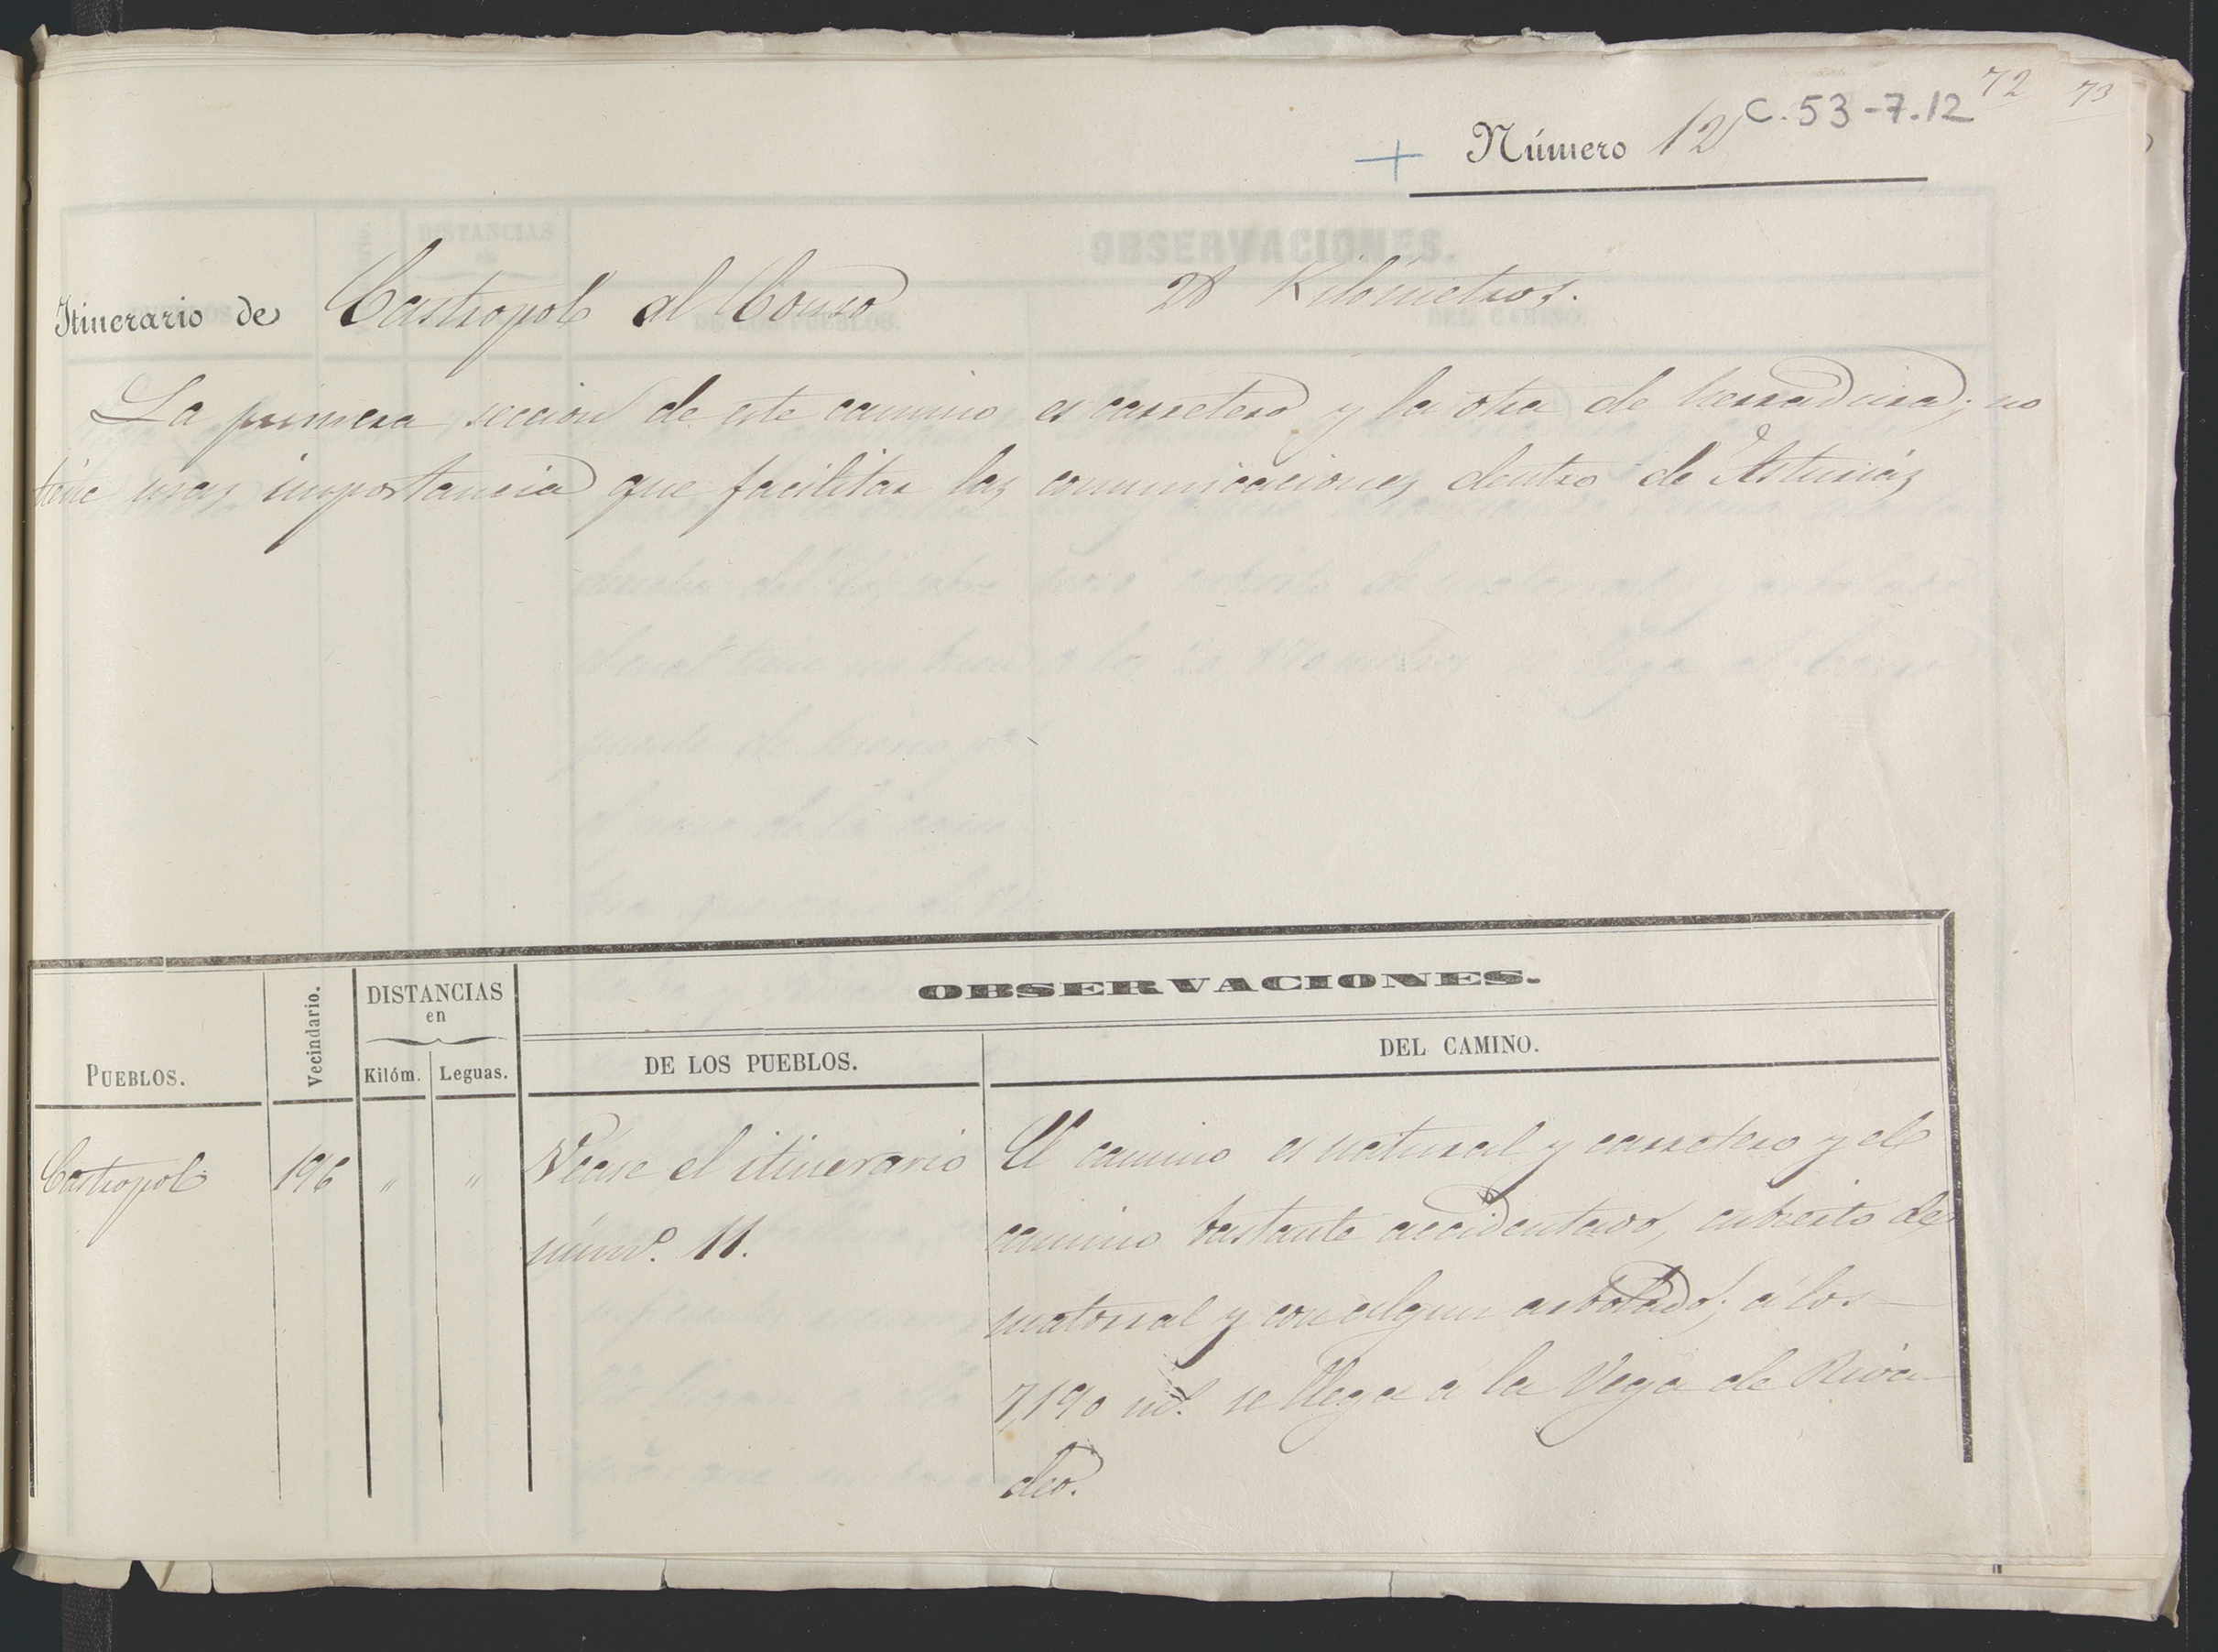 72 73
C. 53-7.12
+ Número 12
Itinerario de Castropol al Couso 28 Kilómetros.
La primera seccion de este camino es carretero y la otra de herradura; no
tiene mas importancia que facilitar las comunicaciones dentro de Asturias
PUEBLOS.
Vecindario.
DISTANCIAS
en
Kilóm. Leguas.
OBSERVACIONES.
DE LOS PUEBLOS.
DEL CAMINO.
Castropol 196 " "
Vease el itinerario
númº. 11.
El camino es natural y carretero y el
camino bastante accidentado, cubierto de
matorral y con algun arbolado; á los
7,190 mt. se llega a la Vega de Riva
deo.